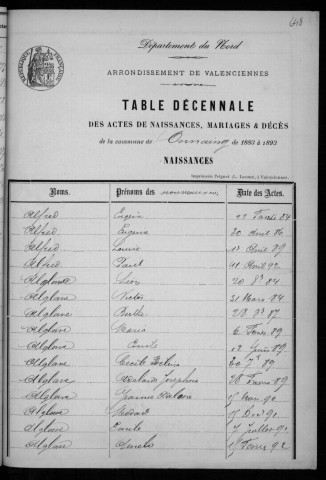 648
RÉPUBLIQUE FRANÇAISE
Département du Nord
ARRONDISSEMENT DE VALENCIENNES
TABLE DÉCENNALE
DES ACTES DE NAISSANCES, MARIAGES & DÉCÈS
de la commune de Onnaing de 1883 à 1893
NAISSANCES
Imprimerie Prignet, L. Lecocq, à Valenciennes.
Noms. Prénoms des nouveaux-nés Date des Actes.
Alfred Eugène 84
Alfred Eugenie 20 Avril 86
Alfred Louise 13 Avril 89
Alfred Paul 11 Avril 92
Alglave Léon 20 84
Alglave Victor 31 Mars 84
Alglave Berthe 87
Alglave Maria 6 89
Alglave Emile 12 Juin 89
Alglave Cécile 20 7bre 89
Alglave Adelaïde Joséphine 28 89
Alglave Jeanne 90
Alglave Médard 90
Alglave Emile Juillet 91
Alglave Amélie 92